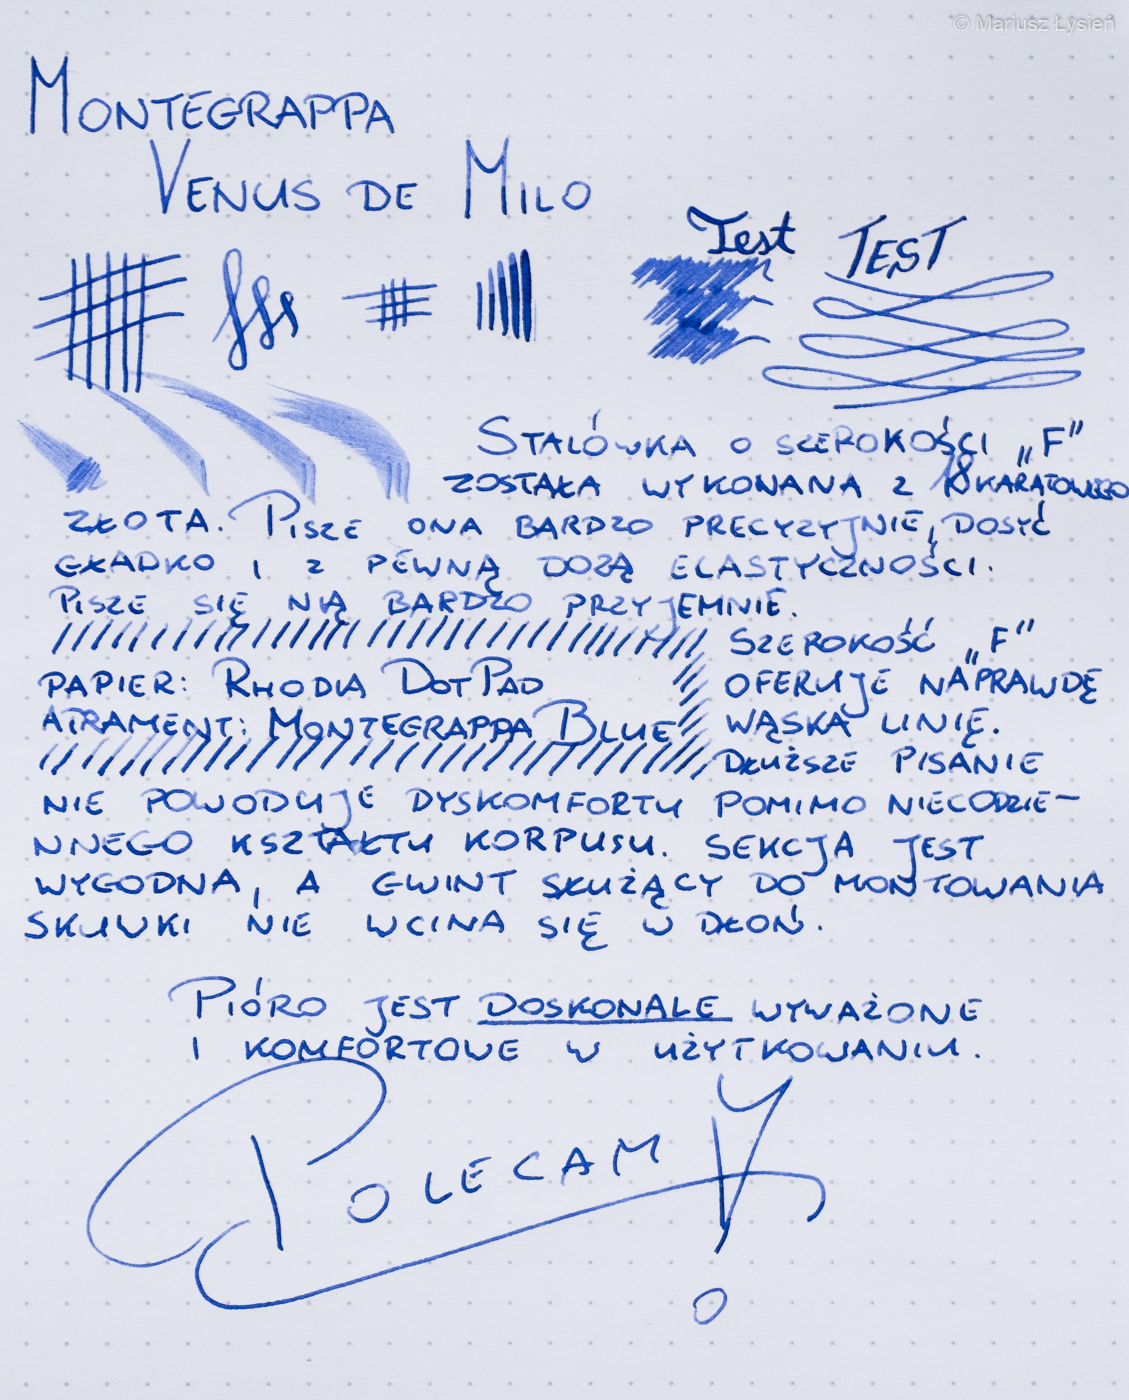 © Mariusz Łysień
MONTEGRAPPA
VENUS DE MILO
Test TEST
STALÓWKA O SZEROKOŚCI „F”
ZOSTAŁA WYKONANA Z 18 KARATOWEGO
ZŁOTA. PISZE ONA BARDZO PRECYZYJNIE, DOSYĆ
GŁADKO I Z PEWNĄ DOZĄ ELASTYCZNOŚCI.
PISZE SIĘ NIĄ BARDZO PRZYJEMNIE.
SZEROKOŚĆ „F”
PAPIER: RHODIA DOTPAD OFERUJE NAPRAWDĘ
ATRAMENT: MONTEGRAPPA BLUE WĄSKĄ LINIĘ.
DŁUŻSZE PISANIE
NIE POWODUJE DYSKOMFORTU POMIMO NIECODZIE-
NNEGO KSZTAŁTU KORPUSU. SEKCJA JEST
WYGODNA, A GWINT SŁUŻĄCY DO MONTOWANIA
SKUWKI NIE WCINA SIĘ W DŁOŃ.
PIÓRO JEST DOSKONALE WYWAŻONE
I KOMFORTOWE W UŻYTKOWANIU.
POLECAM!